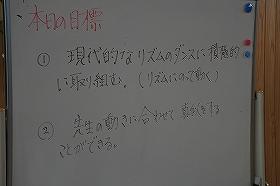 本日の目標
① 現代的なリズムのダンスに積極的
に取り組む。(リズムにのって動く)
② 先生の動きに合わせて動きをする
ことができる。